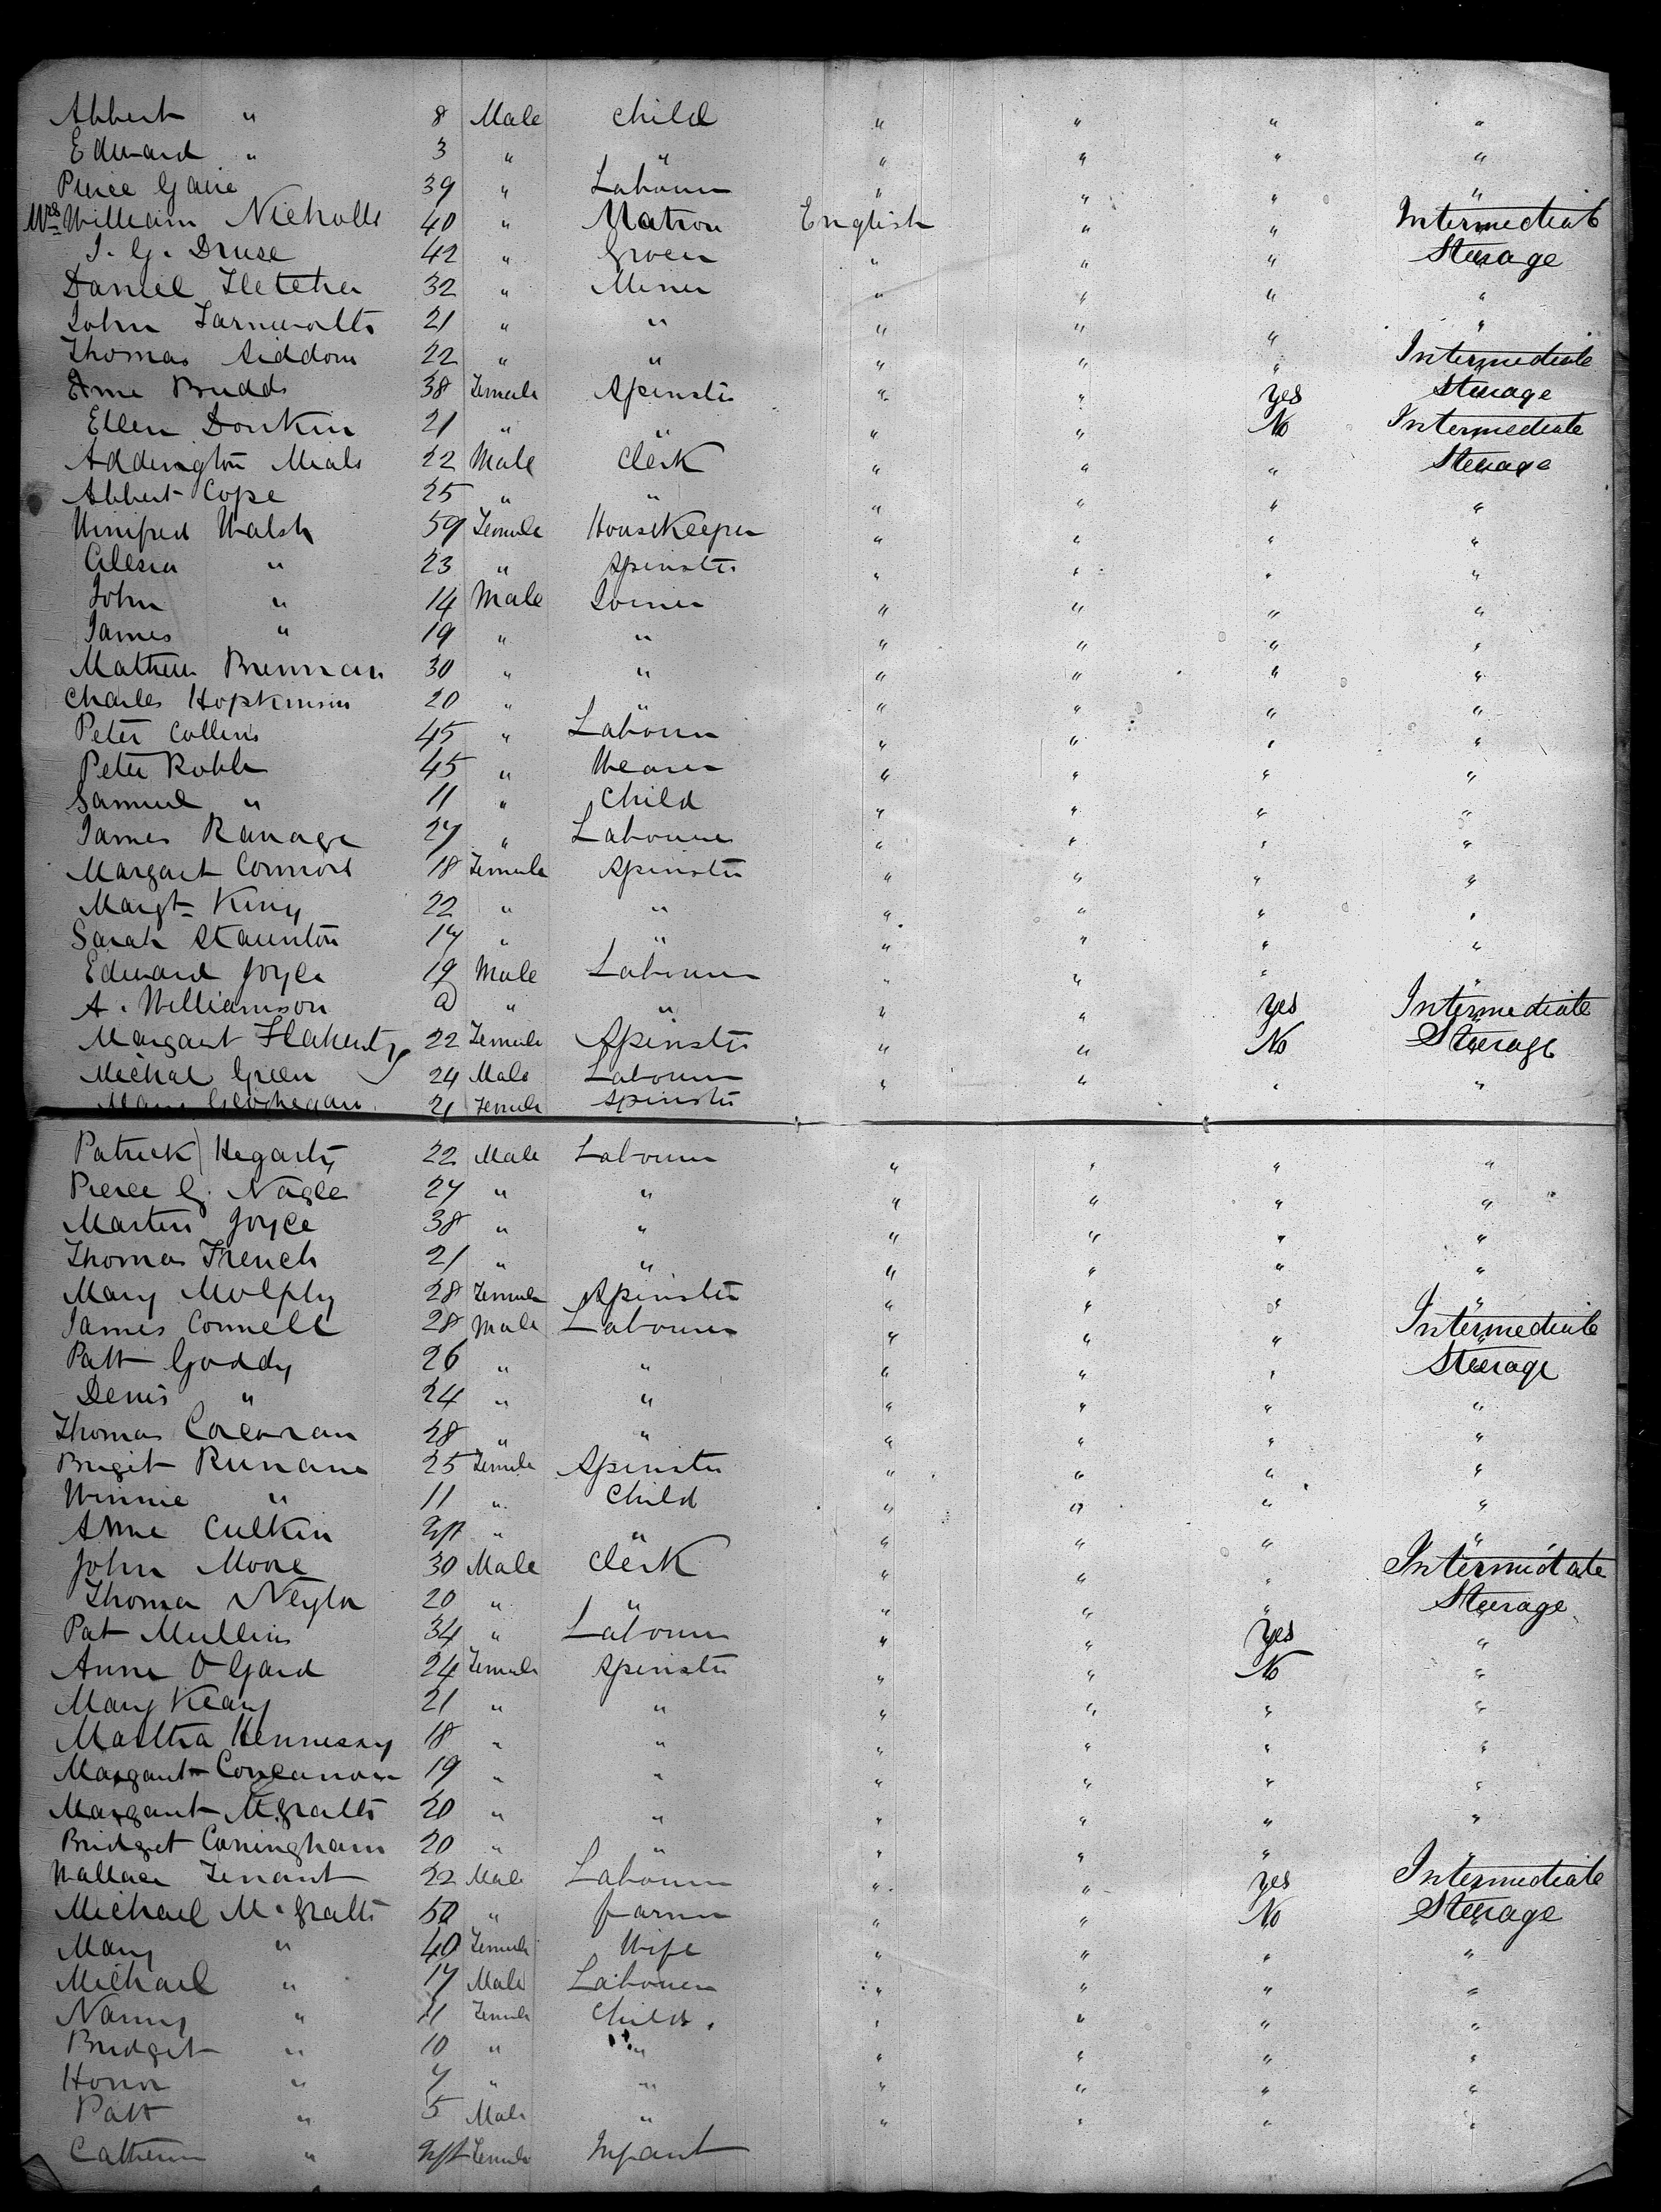 Albert " 8 Male Child " " " "
Edward " 3 " " " " " "
Pierce 39 " Labourer " " " "
Mrs William Nicholls 40 " Matron English " " Intermediate
J. G. Druse 42 " " " " Steerage
Daniel Fletcher 32 " Miner " " " "
John 21 " " " " " "
Thomas Siddons 22 " " " " " Intermediate
Budds 38 Female Spinster " " Yes Steerage
Ellen Donkin 21 " " " " No Intermediate
Addington Meals 22 Male Clerk " " " Steerage
Albert Cope 25 " " " " " "
Winifred Walsh 59 Female Housekeeper " " " "
" 23 " Spinster " " " "
John " 14 Male Joiner " " " "
James " 19 " " " " " "
Mathew Brennan 30 " " " " " "
Charles Hopkinson 20 " " " " " "
Peter Collins 45 " Labourer " " " "
Peter 45 " Weaver " " " "
Samuel " 11 " Child " " " "
James Ranage 27 " Labourer " " " "
Margaret Connors 18 Female Spinster " " " "
Margt King 22 " " " " " "
Sarah Staunton 17 " " " " " "
Edward Joyce 19 Male Labourer " " " "
A. Williamson a " " " " Yes Intermediate
Margaret Flaherty 22 Female Spinster " " No Steerage
Michael Green 24 Male Labourer " " " "
Mary Geoghegan 21 Female Spinster
Patrick Hegarty 22 Male Labourer " " " "
Pierce G. Nagle 27 " " " " " "
Martin Joyce 38 " " " " " "
Thomas French 21 " " " " " "
Mary 28 Female Spinster " " " "
James Connell 28 Male Labourer " " " Intermediate
Patt Goddy 26 " " " " " Steerage
Denis " 24 " " " " " "
Thomas Corcoran 28 " " " " " "
Brigit Runane 25 Female Spinster " " " "
Winnie " 11 " Child " " " "
Anne Culkin " " " " " "
John Moore 30 Male Clerk " " " Intermidate
Thomas 20 " " " " " Steerage
Pat Mullins 34 " Labourer " " Yes "
Anne O Gard 24 Female Spinster " " No "
Mary Keary 21 " " " " " "
Martha Hennessy 18 " " " " " "
Margaret Concanon 19 " " " " " "
Margaret McGrath 20 " " " " " "
Bridget Cuningham 20 " " " " " "
Wallace Tenant 22 Male Labourer " " Yes Intermediate
Michael McGrath 50 " Farmer " " No Steerage
Mary " 40 Female Wife " " " "
Michael " 17 Male Labourer " " " "
Nanny " 11 Female Child " " " "
Bridget " 10 " " " " " "
Honor " 7 " " " " " "
Patt " 5 Male " " " " "
Catherine " Female Infant